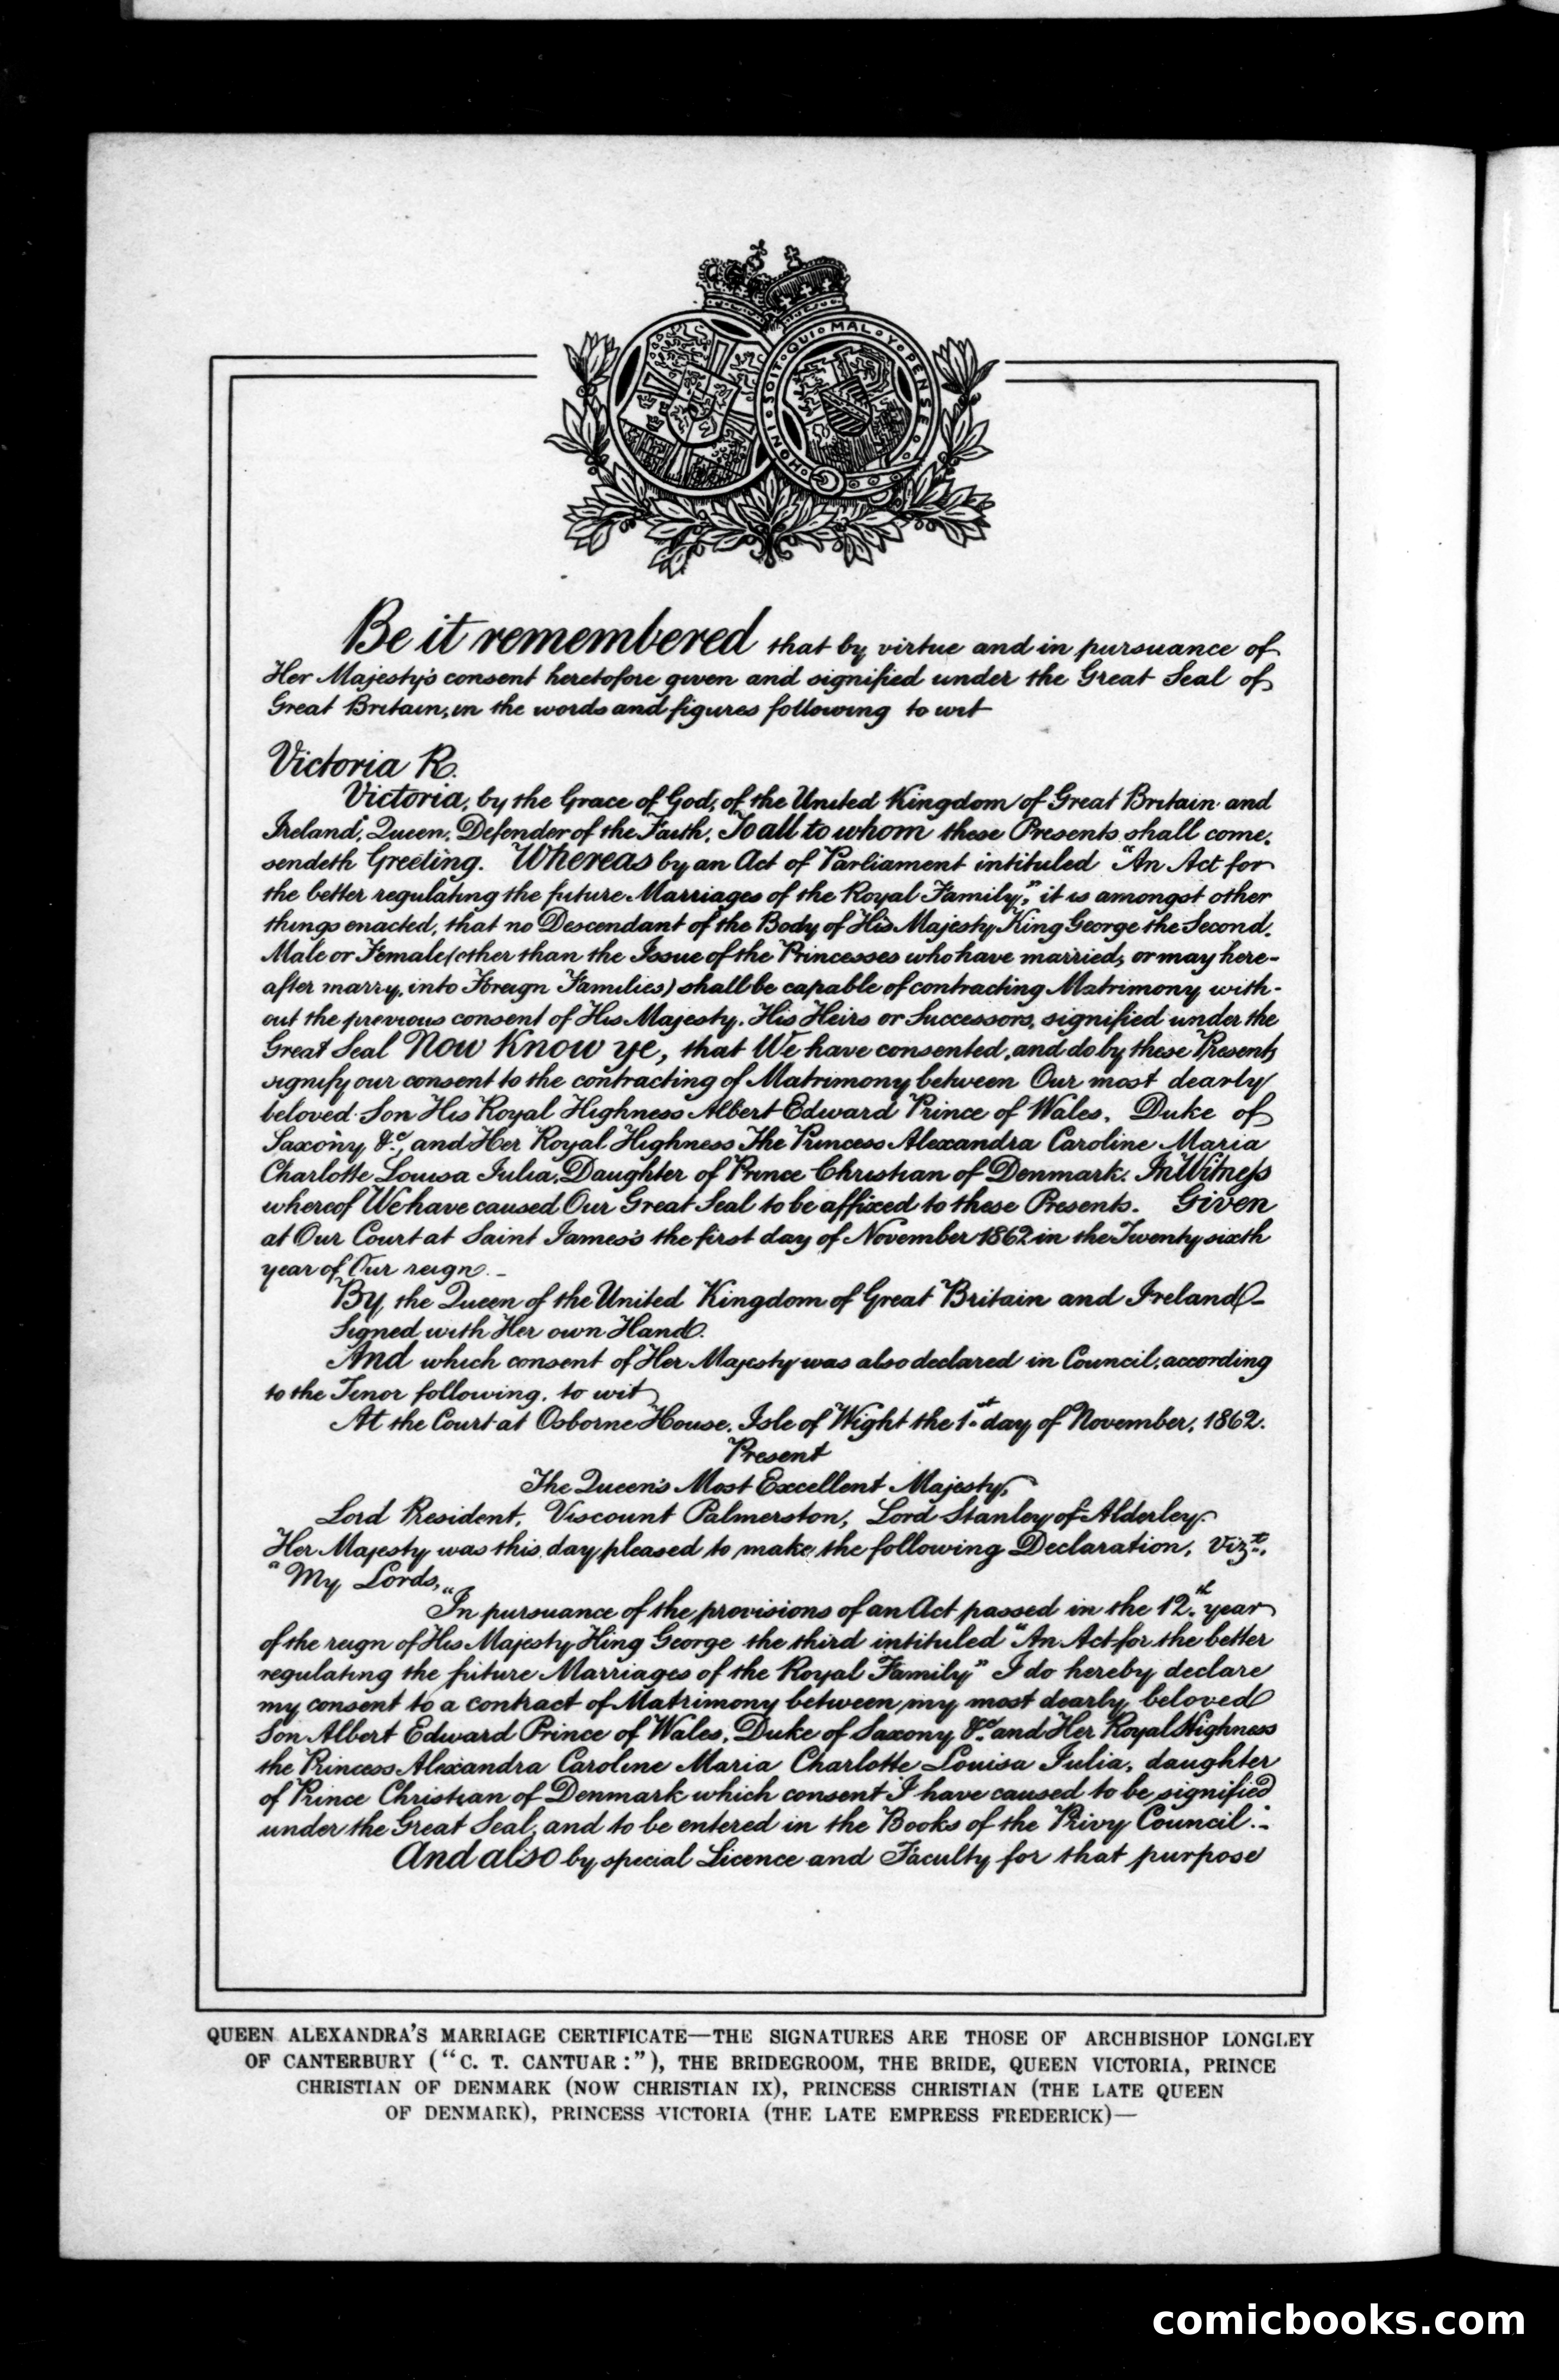 HONI · SOIT · QUI · MAL · Y · PENSE ·
Be it remembered that by virtue and in pursuance of
Her Majesty's consent heretofore given and signified under the Great Seal of
Great Britain, in the words and figures following to wit
Victoria R.
Victoria, by the Grace of God, of the United Kingdom of Great Britain and
Ireland, Queen, Defender of the Faith, To all to whom these Presents shall come,
sendeth Greeting. Whereas by an Act of Parliament intituled "An Act for
the better regulating the future Marriages of the Royal Family," it is amongst other
things enacted, that no Descendant of the Body of His Majesty King George the Second,
Male or Female (other than the Issue of the Princesses who have married, or may here-
after marry, into Foreign Families) shall be capable of contracting Matrimony with-
out the previous consent of His Majesty, His Heirs or Successors, signified under the
Great Seal Now Know ye, that We have consented, and do by these Presents
signify our consent to the contracting of Matrimony between Our most dearly
beloved Son His Royal Highness Albert Edward Prince of Wales, Duke of
Saxony &c., and Her Royal Highness The Princess Alexandra Caroline Maria
Charlotte Louisa Julia, Daughter of Prince Christian of Denmark. In Witness
whereof We have caused Our Great Seal to be affixed to these Presents. Given
at Our Court at Saint James's the first day of November 1862 in the Twenty sixth
year of Our reign. -
By the Queen of the United Kingdom of Great Britain and Ireland -
Signed with Her own Hand.
And which consent of Her Majesty was also declared in Council, according
to the Tenor following, to wit
At the Court at Osborne House, Isle of Wight the 1st day of November, 1862.
Present
The Queen's Most Excellent Majesty,
Lord President, Viscount Palmerston, Lord Stanley of Alderley
Her Majesty was this day pleased to make the following Declaration, Vizt.,
"My Lords,
"In pursuance of the provisions of an Act passed in the 12th year
of the reign of His Majesty King George the third intituled "An Act for the better
regulating the future Marriages of the Royal Family" I do hereby declare
my consent to a contract of Matrimony between my most dearly beloved
Son Albert Edward Prince of Wales, Duke of Saxony &c. and Her Royal Highness
the Princess Alexandra Caroline Maria Charlotte Louisa Julia, daughter
of Prince Christian of Denmark which consent I have caused to be signified
under the Great Seal, and to be entered in the Books of the Privy Council:-
And also by special Licence and Faculty for that purpose
QUEEN ALEXANDRA'S MARRIAGE CERTIFICATE—THE SIGNATURES ARE THOSE OF ARCHBISHOP LONGLEY
OF CANTERBURY ("C. T. CANTUAR:"), THE BRIDEGROOM, THE BRIDE, QUEEN VICTORIA, PRINCE
CHRISTIAN OF DENMARK (NOW CHRISTIAN IX), PRINCESS CHRISTIAN (THE LATE QUEEN
OF DENMARK), PRINCESS VICTORIA (THE LATE EMPRESS FREDERICK)—
comicbooks.com